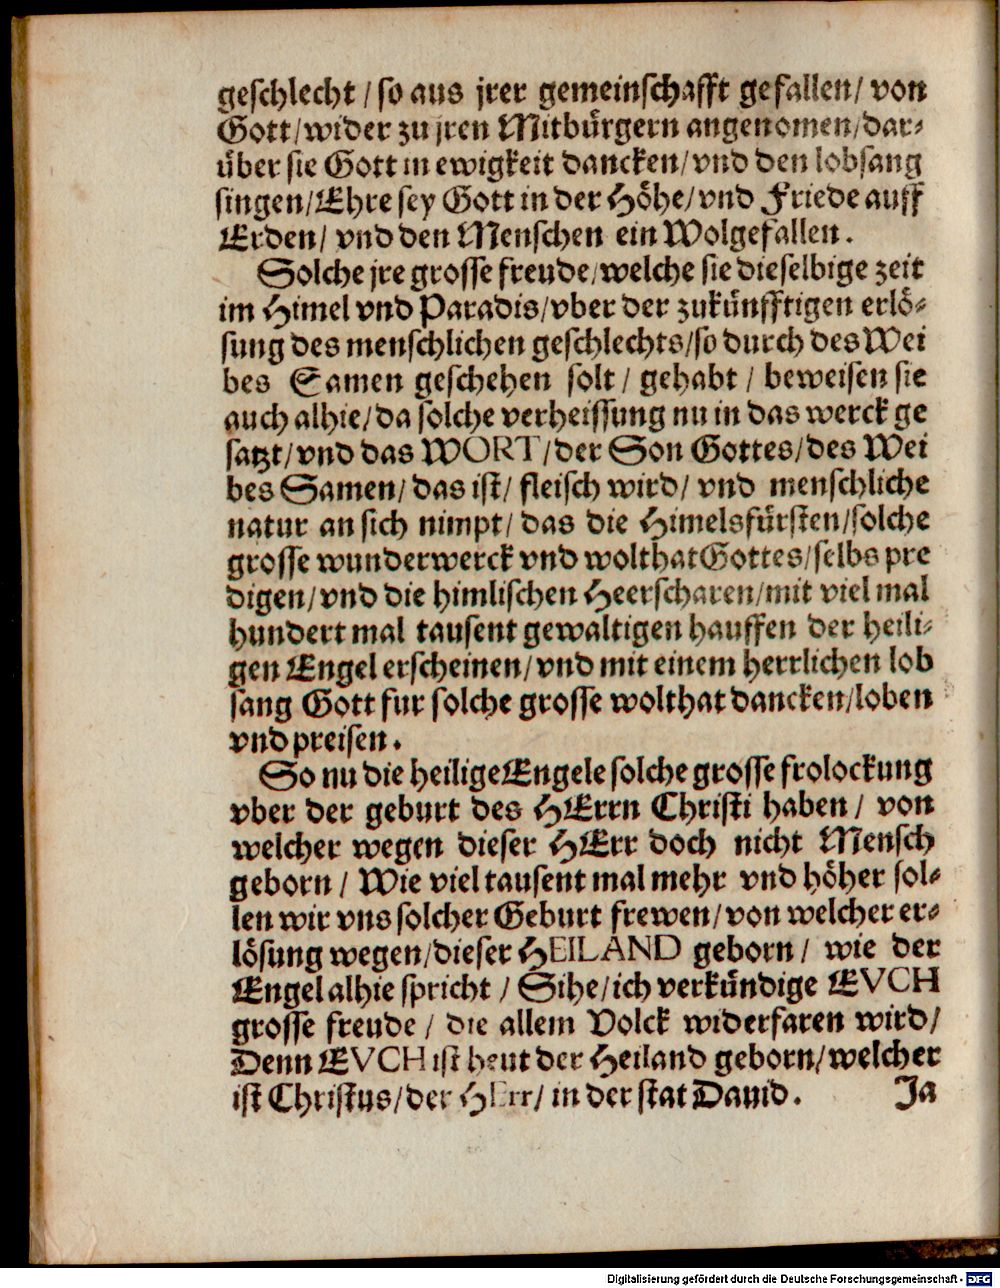 geschlecht / so aus jrer gemeinschafft gefallen / von
Gott / wider zu jren Mitbürgern angenomen / dar-
über sie Gott in ewigkeit dancken / vnd den lobsang
singen / Ehre sey Gott in der Höhe / vnd Friede auff
Erden / vnd den Menschen ein Wolgefallen.
Solche jre grosse freude / welche sie dieselbige zeit
im Himel vnd Paradis / vber der zukünfftigen erlö-
sung des menschlichen geschlechts / so durch des Wei
bes Samen geschehen solt / gehabt / beweisen sie
auch alhie / da solche verheissung nu in das werck ge
satzt / vnd das WORT / der Son Gottes / des Wei
bes Samen / das ist / fleisch wird / vnd menschliche
natur an sich nimpt / das die Himelsfürsten / solche
grosse wunderwerck vnd wolthat Gottes / selbs pre
digen / vnd die himlischen Heerscharen / mit viel mal
hundert mal tausent gewaltigen hauffen der heili-
gen Engel erscheinen / vnd mit einem herrlichen lob
sang Gott fur solche grosse wolthat dancken / loben
vnd preisen.
So nu die heilige Engele solche grosse frolockung
vber der geburt des HErrn Christi haben / von
welcher wegen dieser HErr doch nicht Mensch
geborn / Wie viel tausent mal mehr vnd höher sol-
len wir vns solcher Geburt frewen / von welcher er-
lösung wegen / dieser HEILAND geborn / wie der
Engel alhie spricht / Sihe / ich verkündige EVCH
grosse freude / die allem Volck widerfaren wird /
Denn EVCH ist heut der Heiland geborn / welcher
ist Christus / der HErr / in der stat Dauid.
Ja
Digitalisierung gefördert durch die Deutsche Forschungsgemeinschaft - DFG